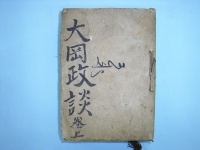 大岡政談巻上